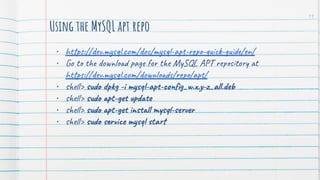 Using the MySQL apt repo
• https://dev.mysql.com/doc/mysql-apt-repo-quick-guide/en/
• Go to the download page for the MySQL APT repository at
https://dev.mysql.com/downloads/repo/apt/
• shell> sudo dpkg -i mysql-apt-config_w.x.y-z_all.deb
• shell> sudo apt-get update
• shell> sudo apt-get install mysql-server
• shell> sudo service mysql start